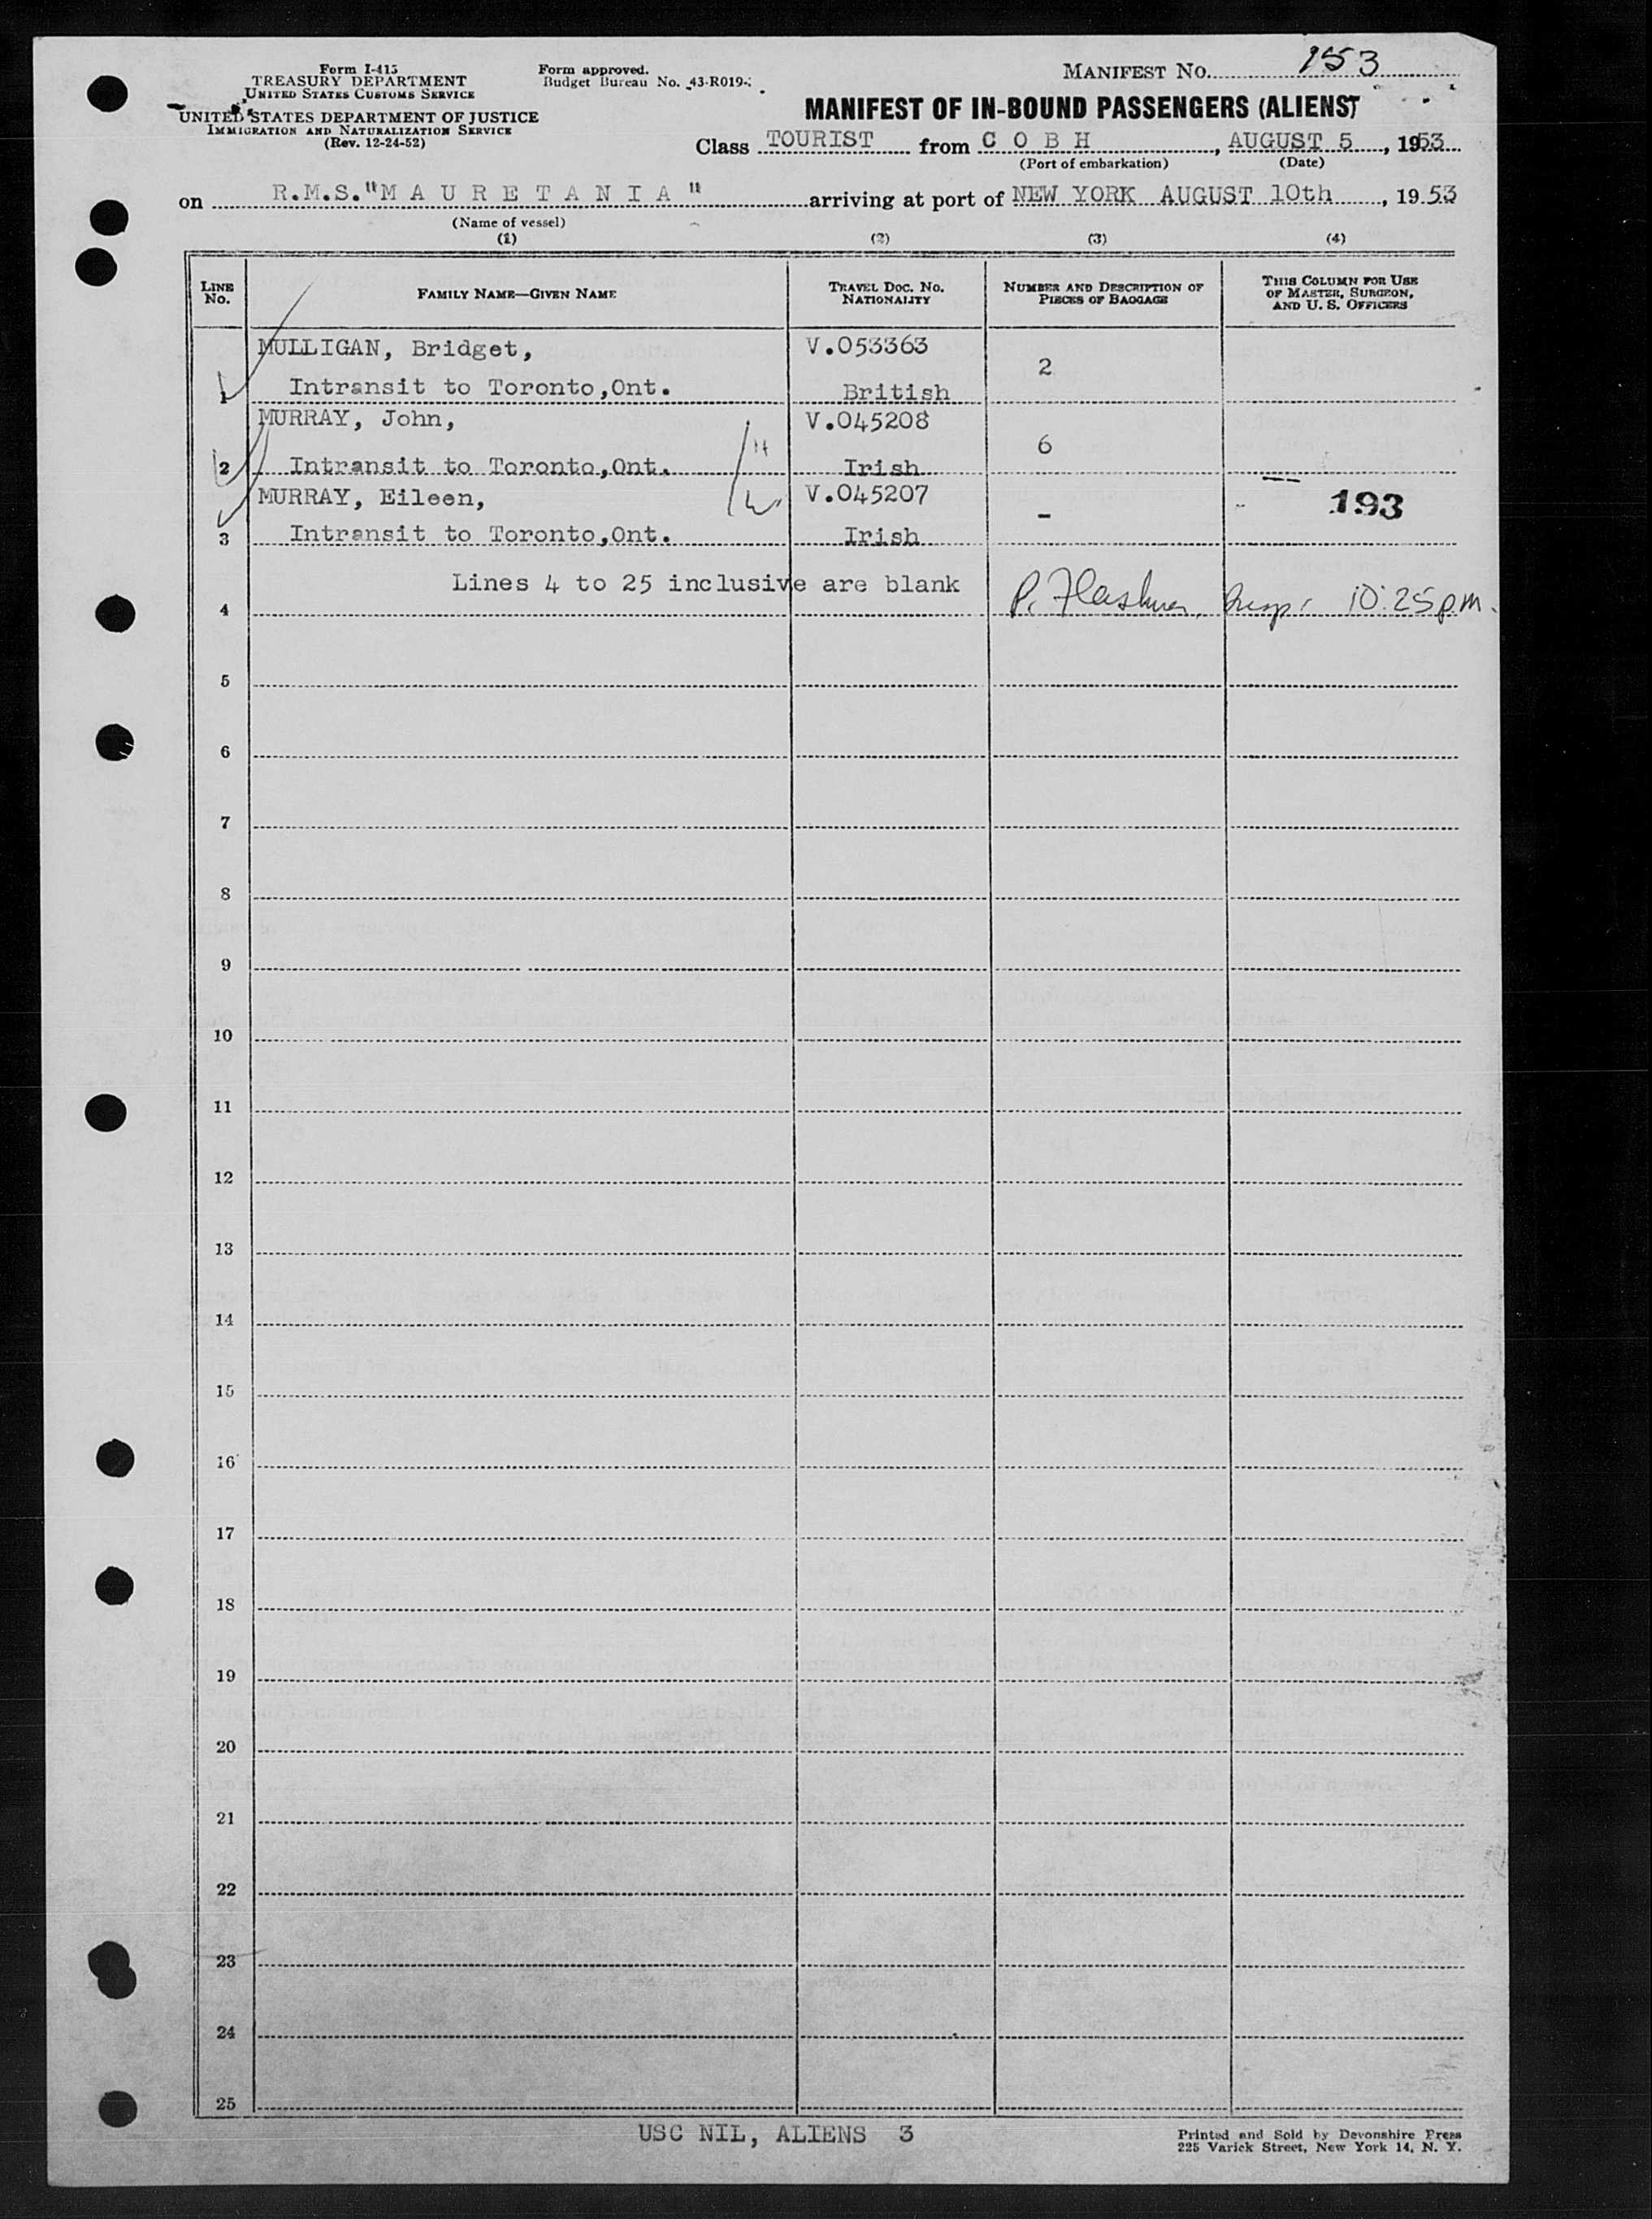 Form I-415
TREASURY DEPARTMENT
UNITED STATES CUSTOMS SERVICE
UNITED STATES DEPARTMENT OF JUSTICE
IMMIGRATION AND NATURALIZATION SERVICE
(Rev. 12-24-52)
Form approved.
Budget Bureau No. 43-R019-
MANIFEST No. 153
MANIFEST OF IN-BOUND PASSENGERS (ALIENS)
Class TOURIST from C O B H, AUGUST 5, 1953
(Port of embarkation) (Date)
on R.M.S."M A U R E T A N I A" arriving at port of NEW YORK AUGUST 10th, 1953
(Name of vessel)
(1) (2) (3) (4)
LINE No. FAMILY NAME—GIVEN NAME TRAVEL DOC. NO. NATIONALITY NUMBER AND DESCRIPTION OF PIECES OF BAGGAGE THIS COLUMN FOR USE OF MASTER, SURGEON, AND U. S. OFFICERS
MULLIGAN, Bridget, V.053363
1 Intransit to Toronto,Ont. British 2
MURRAY, John, V.045208
2 Intransit to Toronto,Ont. H Irish 6
MURRAY, Eileen, W V.045207 - 193
3 Intransit to Toronto,Ont. Irish
Lines 4 to 25 inclusive are blank
4 P. Flashner, Insp. 10:25 p.m.
5
6
7
8
9
10
11
12
13
14
15
16
17
18
19
20
21
22
23
24
25
USC NIL, ALIENS 3
Printed and Sold by Devonshire Press
225 Varick Street, New York 14, N. Y.